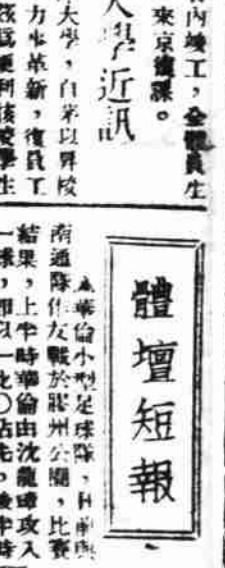 內竣工，全體員生
來京復課。
大學近訊
大學，自茅以昇校
力求革新，復員工
為便利 學生
體壇短報
▲華倫小型足球隊，日前與
南通隊作友戰於膠州公園，比賽
結果，上半時華倫由沈龍 攻入
一球，即以一比〇佔先，後半時